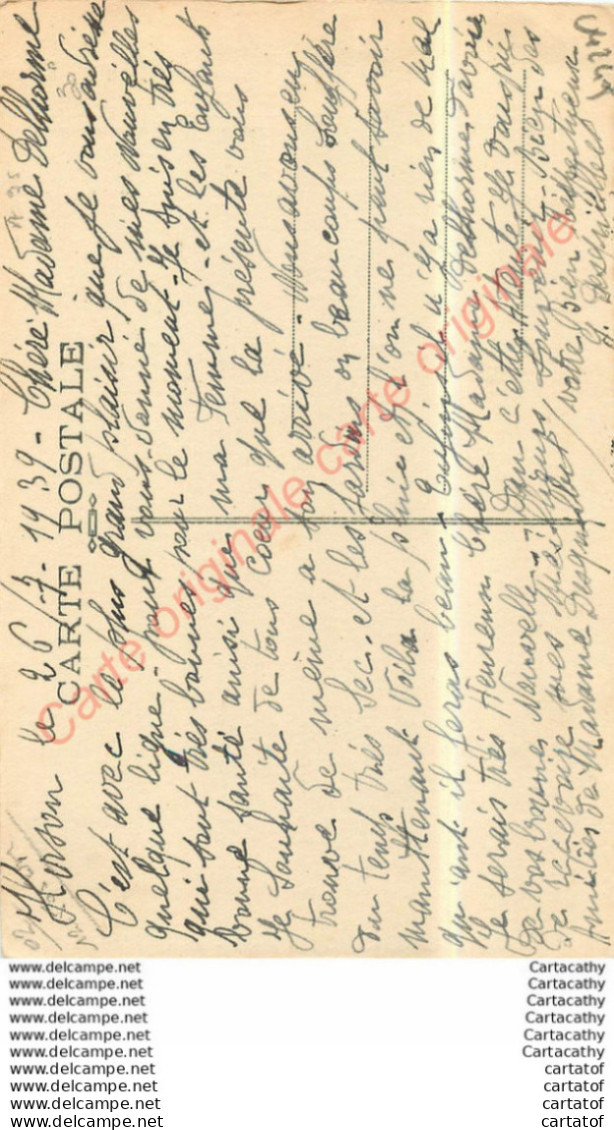 Hirson le 26/7-1939- Chère Madame Delhorme
CARTE POSTALE
C'est avec le plus grand plaisir que je vous adresse
quelque ligne pour vous donné de mes nouvelles
qui sont très bonnes pour le moment. Je suis en très
bonne santé ainsi que ma femme. et les Enfants
Je souhaite de tous cœur que la présente vous
trouve de même a son arrivé. Nous avons eu
du temps très sec. et les Jardins on beaucoups souffère
maintenant voila la pluie et l'on ne peut savoir
qu'ant il feras beau. Enfins il n'y a rien de mal
Je serais très Heureux Chère Madame Delhorme d'avoir
de vos bonnes Nouvelles. Dans cette Attente Je vous pris
de recevoir mes meilleurs souvenirs. Bien des
Amitiés de Madame votre bien
Carte originale carte originale
www.delcampe.net
www.delcampe.net
www.delcampe.net
www.delcampe.net
www.delcampe.net
www.delcampe.net
www.delcampe.net
www.delcampe.net
www.delcampe.net
www.delcampe.net
Cartacathy
Cartacathy
Cartacathy
Cartacathy
Cartacathy
Cartacathy
cartatof
cartatof
cartatof
cartatof